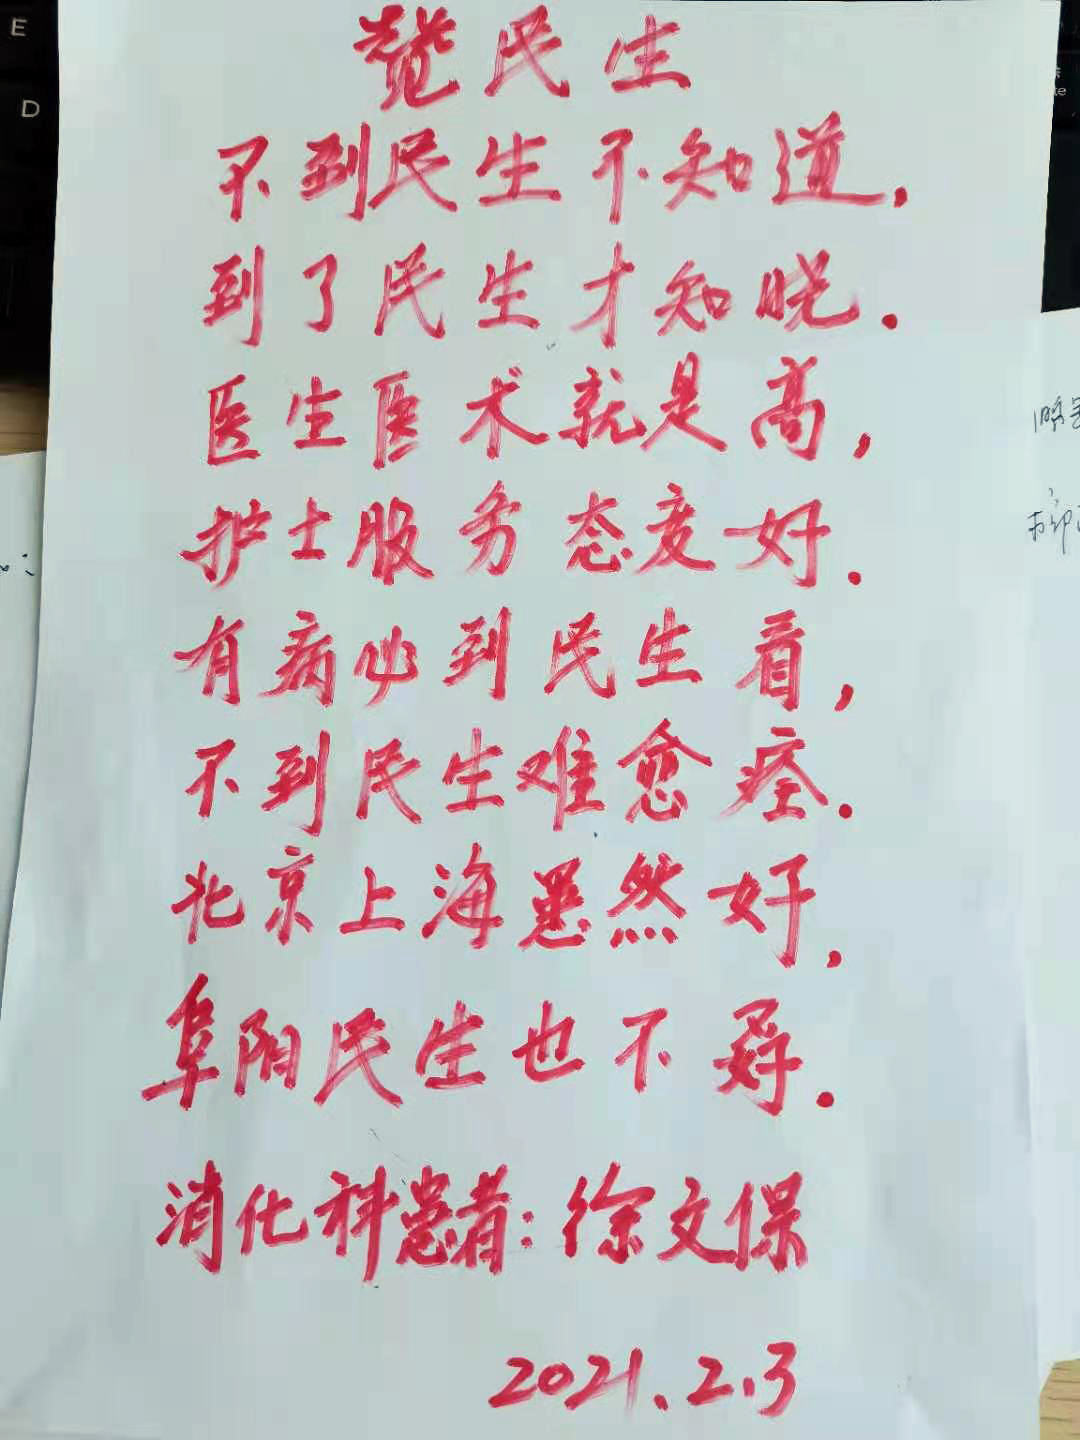 赞民生
不到民生不知道.
到了民生才知晓.
医生医术就是高,
护士服务态度好.
有病必到民生看,
不到民生难愈痊.
北京上海虽然好.
阜阳民生也不孬.
消化科患者:徐文保
2021.2.3
E
D